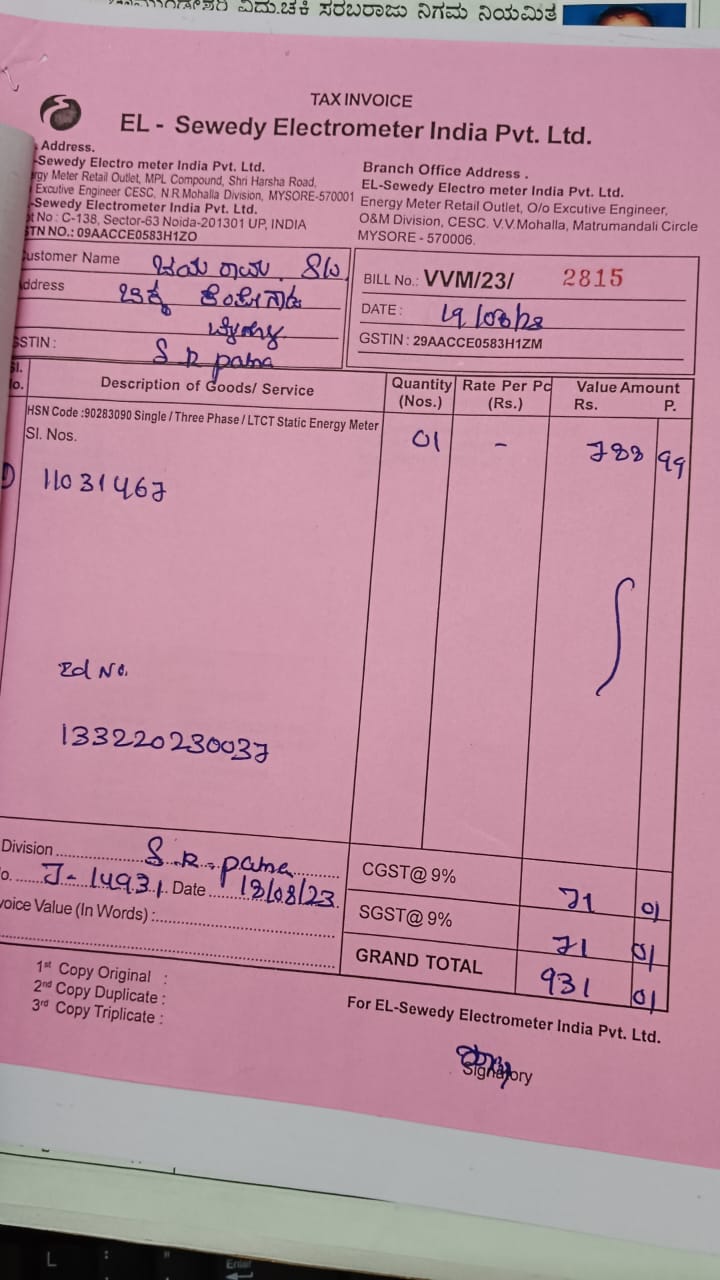 ವಿದ್ಯುಚ್ಛಕ್ತಿ ಸರಬರಾಜು ನಿಗಮ ನಿಯಮಿತ
TAX INVOICE
EL - Sewedy Electrometer India Pvt. Ltd.
Address.
-Sewedy Electro meter India Pvt. Ltd.
rgy Meter Retail Outlet, MPL Compound, Shri Harsha Road,
Excutive Engineer CESC, N.R.Mohalla Division, MYSORE-570001
-Sewedy Electrometer India Pvt. Ltd.
t No : C-138, Sector-63 Noida-201301 UP, INDIA
STN NO.: 09AACCE0583H1ZO
Branch Office Address .
EL-Sewedy Electro meter India Pvt. Ltd.
Energy Meter Retail Outlet, O/o Excutive Engineer,
O&M Division, CESC. V.V.Mohalla, Matrumandali Circle
MYSORE - 570006.
ustomer Name ಜಯರಾಮ S/o
ddress ಚಿಕ್ಕ
STIN : S R patna
BILL No.: VVM/23/ 2815
DATE : 19/08/23
GSTIN : 29AACCE0583H1ZM
Sl. No. Description of Goods/ Service Quantity (Nos.) Rate Per Pc (Rs.) Value Amount Rs. P.
HSN Code :90283090 Single / Three Phase / LTCT Static Energy Meter
Sl. Nos. 01 - 788 99
1) 11031467
Rd No.
133220230037
Division S.R. patna
o. J-14931 Date 18/08/23
voice Value (In Words) :
CGST@ 9% 71 01
SGST@ 9% 71 01
GRAND TOTAL 931 01
1st Copy Original :
2nd Copy Duplicate :
3rd Copy Triplicate :
For EL-Sewedy Electrometer India Pvt. Ltd.
Signatory
L : " Enter